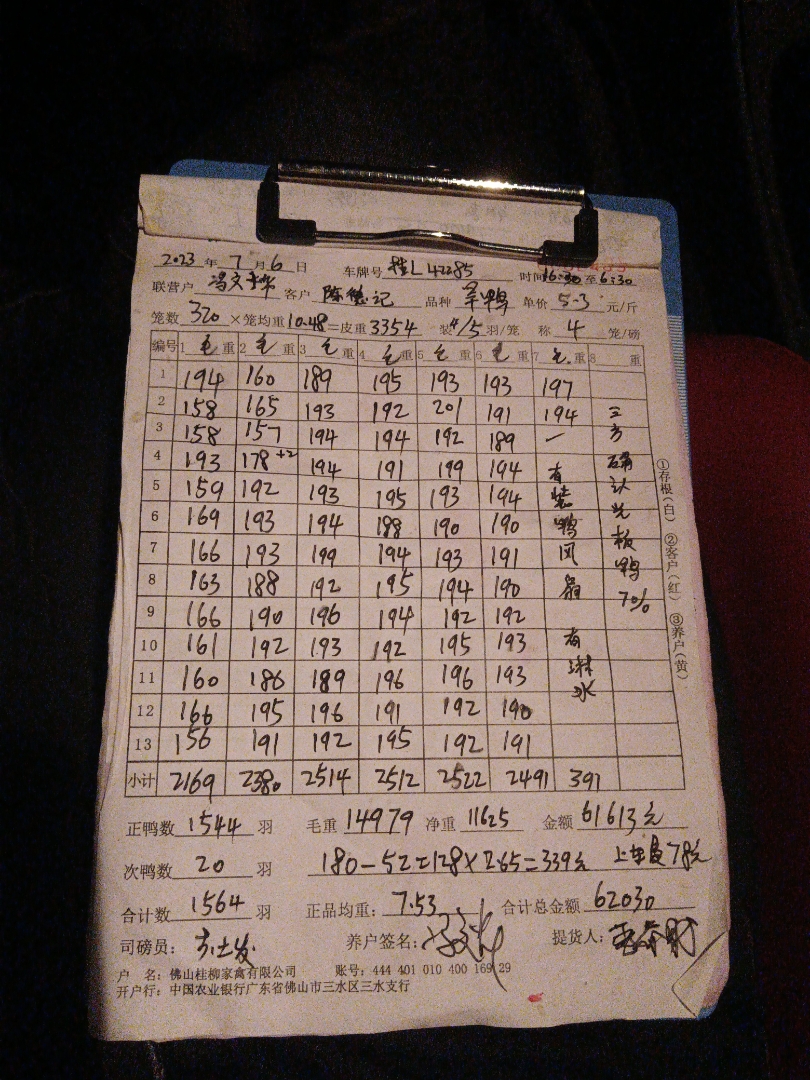 2023年7月6日 车牌号 桂L42285 时间16:30至6:30
联营户 冯文 客户 陈德记 品种 羊鸭 单价 5-3 元/斤
笼数 320 ×笼均重10.48=皮重3354 装 /5羽/笼 称 4 笼/磅
编号 1毛重 2毛重 3毛重 4毛重 5毛重 6毛重 7毛重 8重
1 194 160 189 195 193 193 197
2 158 165 193 192 201 191 194
3 158 157 194 194 192 189 —
4 193 178+2 194 191 199 194
5 159 192 193 195 193 194
6 169 193 194 188 190 190
7 166 193 199 194 193 191
8 163 188 192 195 194 190
9 166 190 196 194 192 192
10 161 192 193 192 195 193
11 160 186 189 196 196 193
12 166 195 196 191 192 190
13 156 191 192 195 192 191
小计 2169 2380 2514 2512 2522 2491 391
有装鸭风扇 有淋水
三方确认光板鸭70%
①存根(白) ②客户(红) ③养户(黄)
正鸭数 1544 羽 毛重 14979 净重 11625 金额 61613元
次鸭数 20 羽 180-52=128×2.65=339元 上车费78元
合计数 1564 羽 正品均重: 7.53 合计总金额 62030
司磅员: 养户签名: 提货人:
户 名: 佛山桂柳家禽有限公司 账号: 444 401 010 400 169 29
开户行: 中国农业银行广东省佛山市三水区三水支行